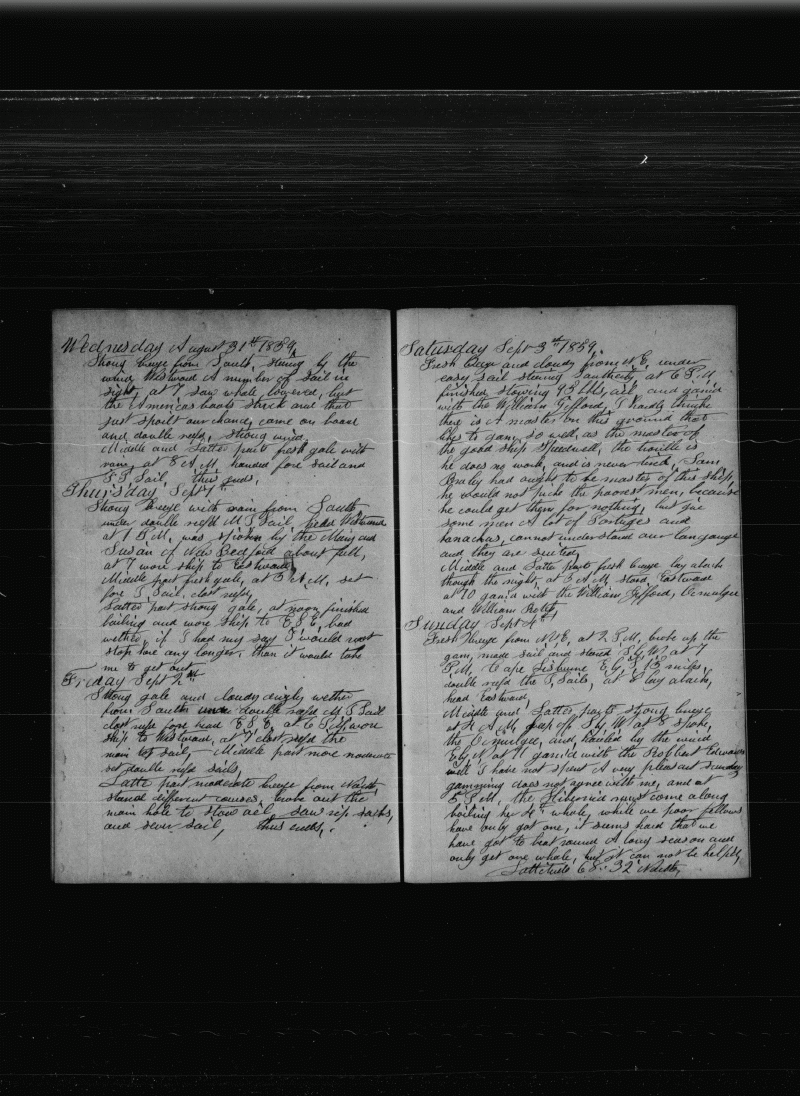 Wednesday August 31st 1859,
Strong breeze from South, stering by the
wind Westward A number of Sail in
sight, at 7 saw whale lowered, but
the Americas boats struck and that
just spoilt our chance, came on board
and double refd, strong wind,
Middle and Latter part fresh gale with
rain, at 8 A.M. handed fore sail and
F.T. Sail, thus ends,
Thursday Sept 1st
Strong breeze with rain from South,
under double refd M T Sail, head Westward
at 1 P.M, was spoken by the Mary and
Susan of New Bedford about full,
at 7 wore ship to Eastward
Middle part fresh gale, at 3 A.M, set
fore T. Sail, clost refd,
Latter part strong gale, at noon finished
boiling and wore ship to E S E, bad
wether, if I had my say I would not
stop here any longer, than it would take
me to get out
Friday Sept 2nd
Strong gale and cloudy drizly wether
from South under double refd M T Sail
clost refd fore head E S E, at 6 P.M, wore
ship to Westward, at 7 clost refd the
main top sail, Middle part more moderate
set double refd sails,
Latte part moderate breeze from
stered different courses, broke out the
main hole to stow oil saw rip sacks,
and sever sail, thus ends,
Saturday Sept 3rd 1859,
Fresh Breeze and cloudy from N E, under
easy sail stering Southerly at 6 P.M,
finished stowing 93 bbls, oil and gam'd
with the William Gifford, I hardly think
there is A master on this ground that
likes to gam, so well, as the master of
the good ship Speedwell, the trouble is
he does no work, and is never tired, Sam
Braley had ought to be master of this ship,
he would not pick the poorest men, because
he could get them for nothing, but give
some men A lot of Portuges and
kanackas, cannot understand our language
and they are
Middle and Latter parts fresh breeze lay aback
though the night, at 3 A.M, stood Eastward
at 10 gam'd with the William Gifford, Ocmulgee
and William Rotch
Sunday Sept 4th
Fresh breeze from N.E, at 2 P.M, broke up the
gam, made sail and stered S by W, at 7
P.M, Cape Lisburne E by S, 15 miles,
double refd the T, Sails, at 8 lay aback,
head Eastward,
Middle and Latter parts strong breeze
at 2 A.M, keep off S by W at 8 spoke,
the Ocmulgee, and hauled by the wind
E by N at 11 gam'd with the Robbert Edwards
well I have not spent A very pleasent sunday
gamming does not agree with me, and at
5 P.M, the Hibernia must come along
boiling her 4th whale, while we poor fellows
have only got one, it seems hard that we
have got to beat round A long season and
only get one whale, but it can not be helpd,
Lattitude 68: 32 North,